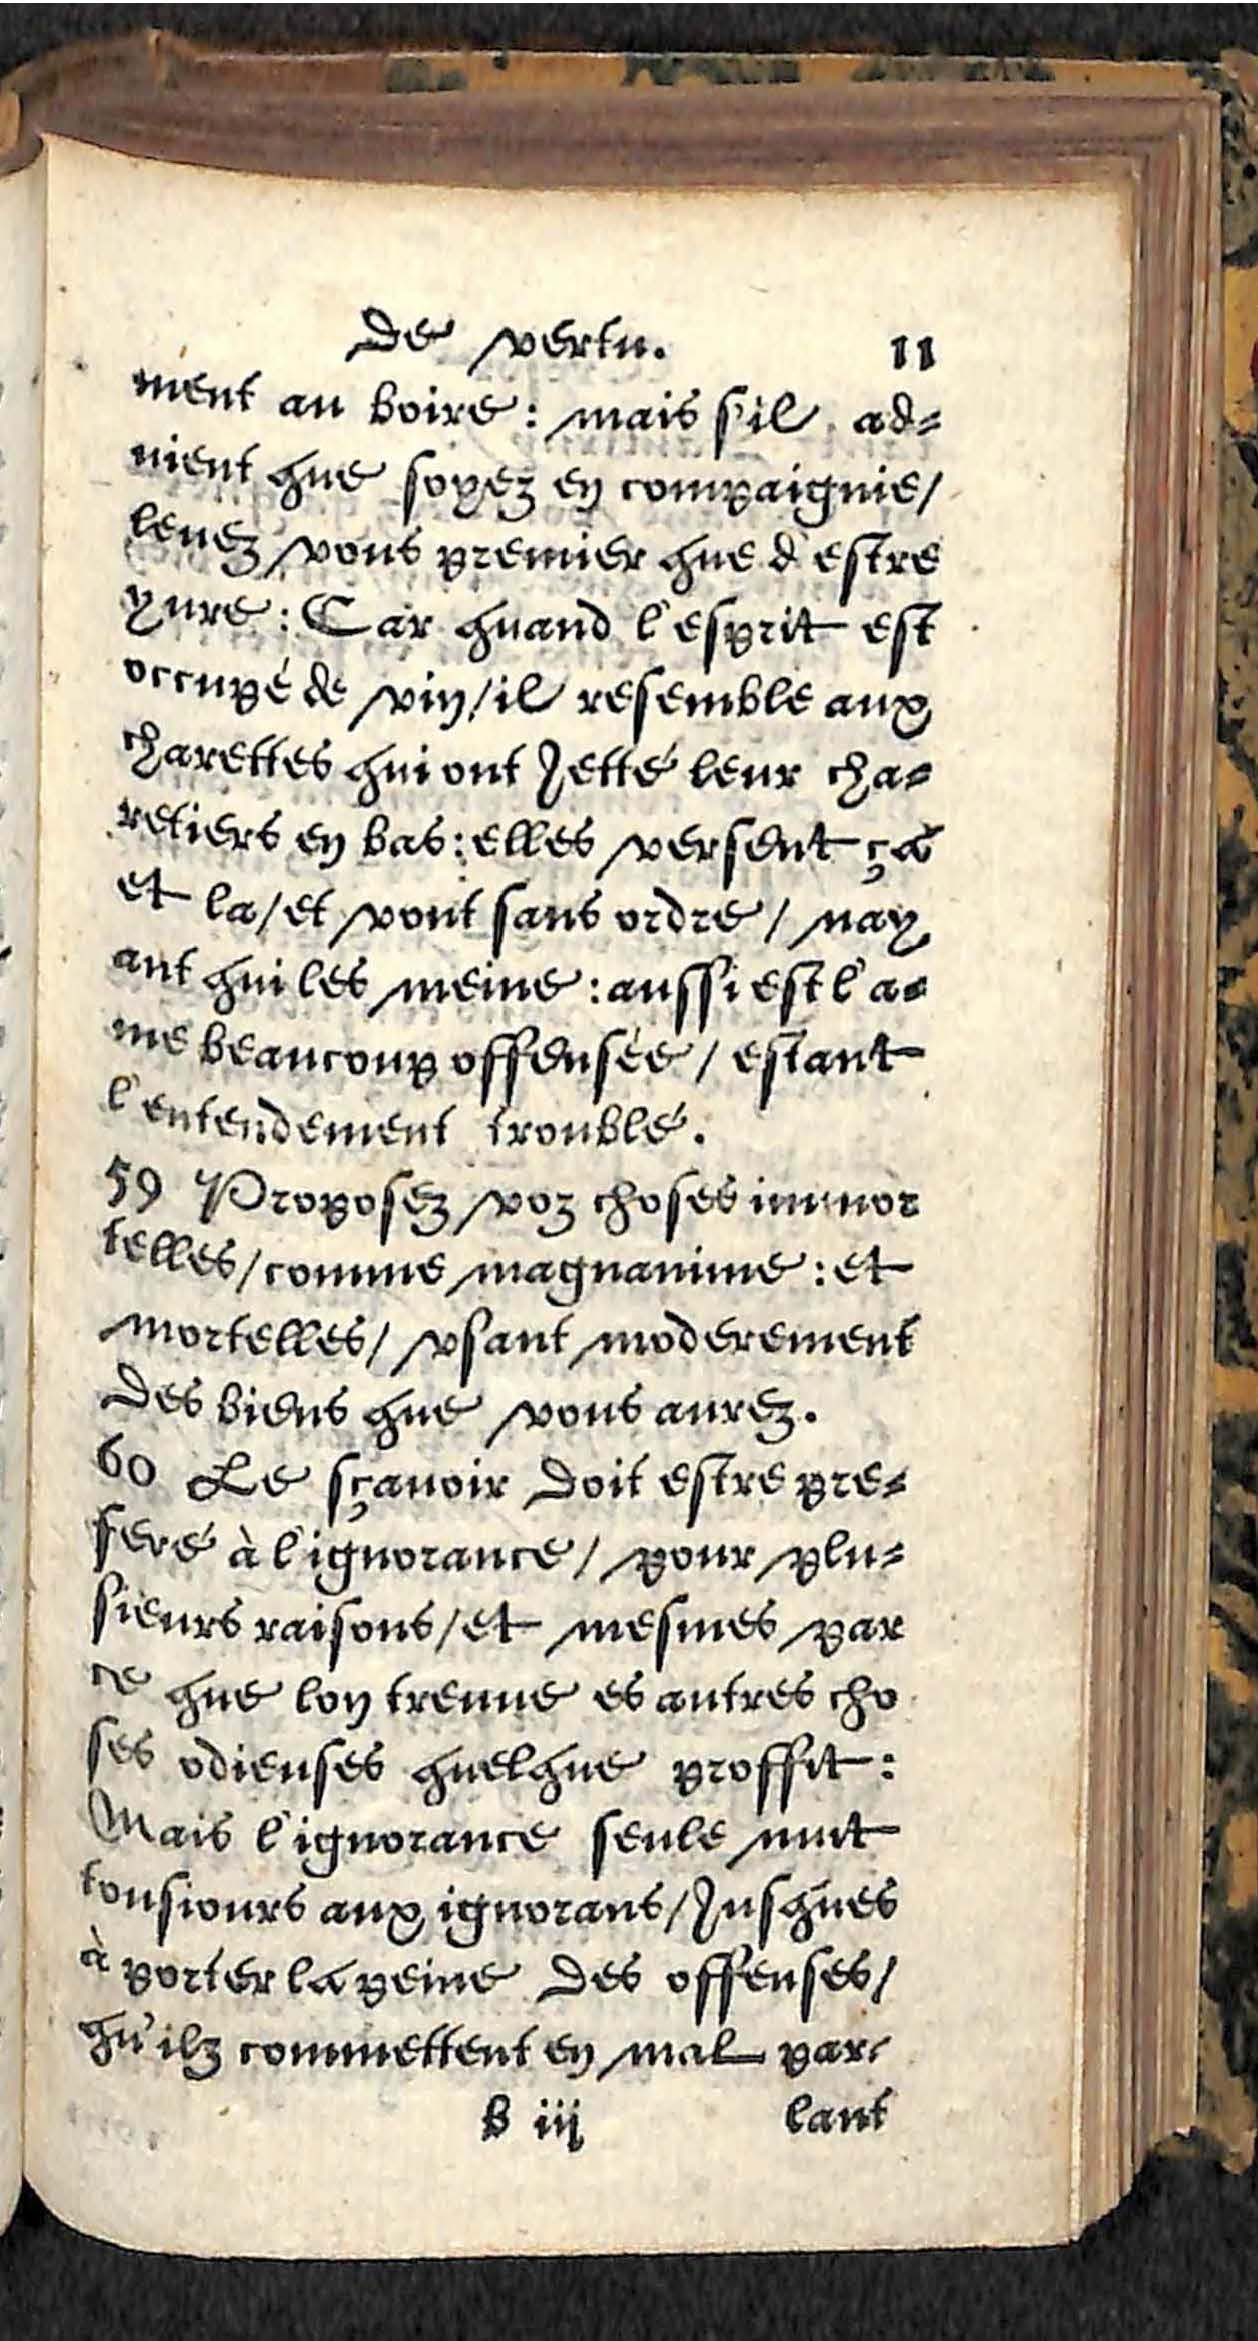 De vertu. 11
ment au boire : mais s'il ad=
uient que soyez en compaignie/
leuez vous premier que d'estre
yure : Car quand l'esprit est
occupé de vin/il resemble aux
charettes qui ont Jetté leur cha=
retiers en bas : elles versent ça
et la/et vont sans ordre/ nay
ant qui les meine : aussi est l'a=
me beaucoup offensée/ estant
l'entendement troublé.
59 Proposez voz choses immor
telles/comme magnanime : et
mortelles/ vsant moderement
des biens que vous aurez.
60 Le sçauoir doit estre pre=
feré à l'ignorance/ pour plu=
sieurs raisons/et mesmes par
ce que lon treuue es autres cho
ses odieuses quelque proffit :
Mais l'ignorance seule nuit
tousiours aux ignorans/Jusques
à porter la peine des offenses/
qu'ilz commettent en mal par=
b iij lant